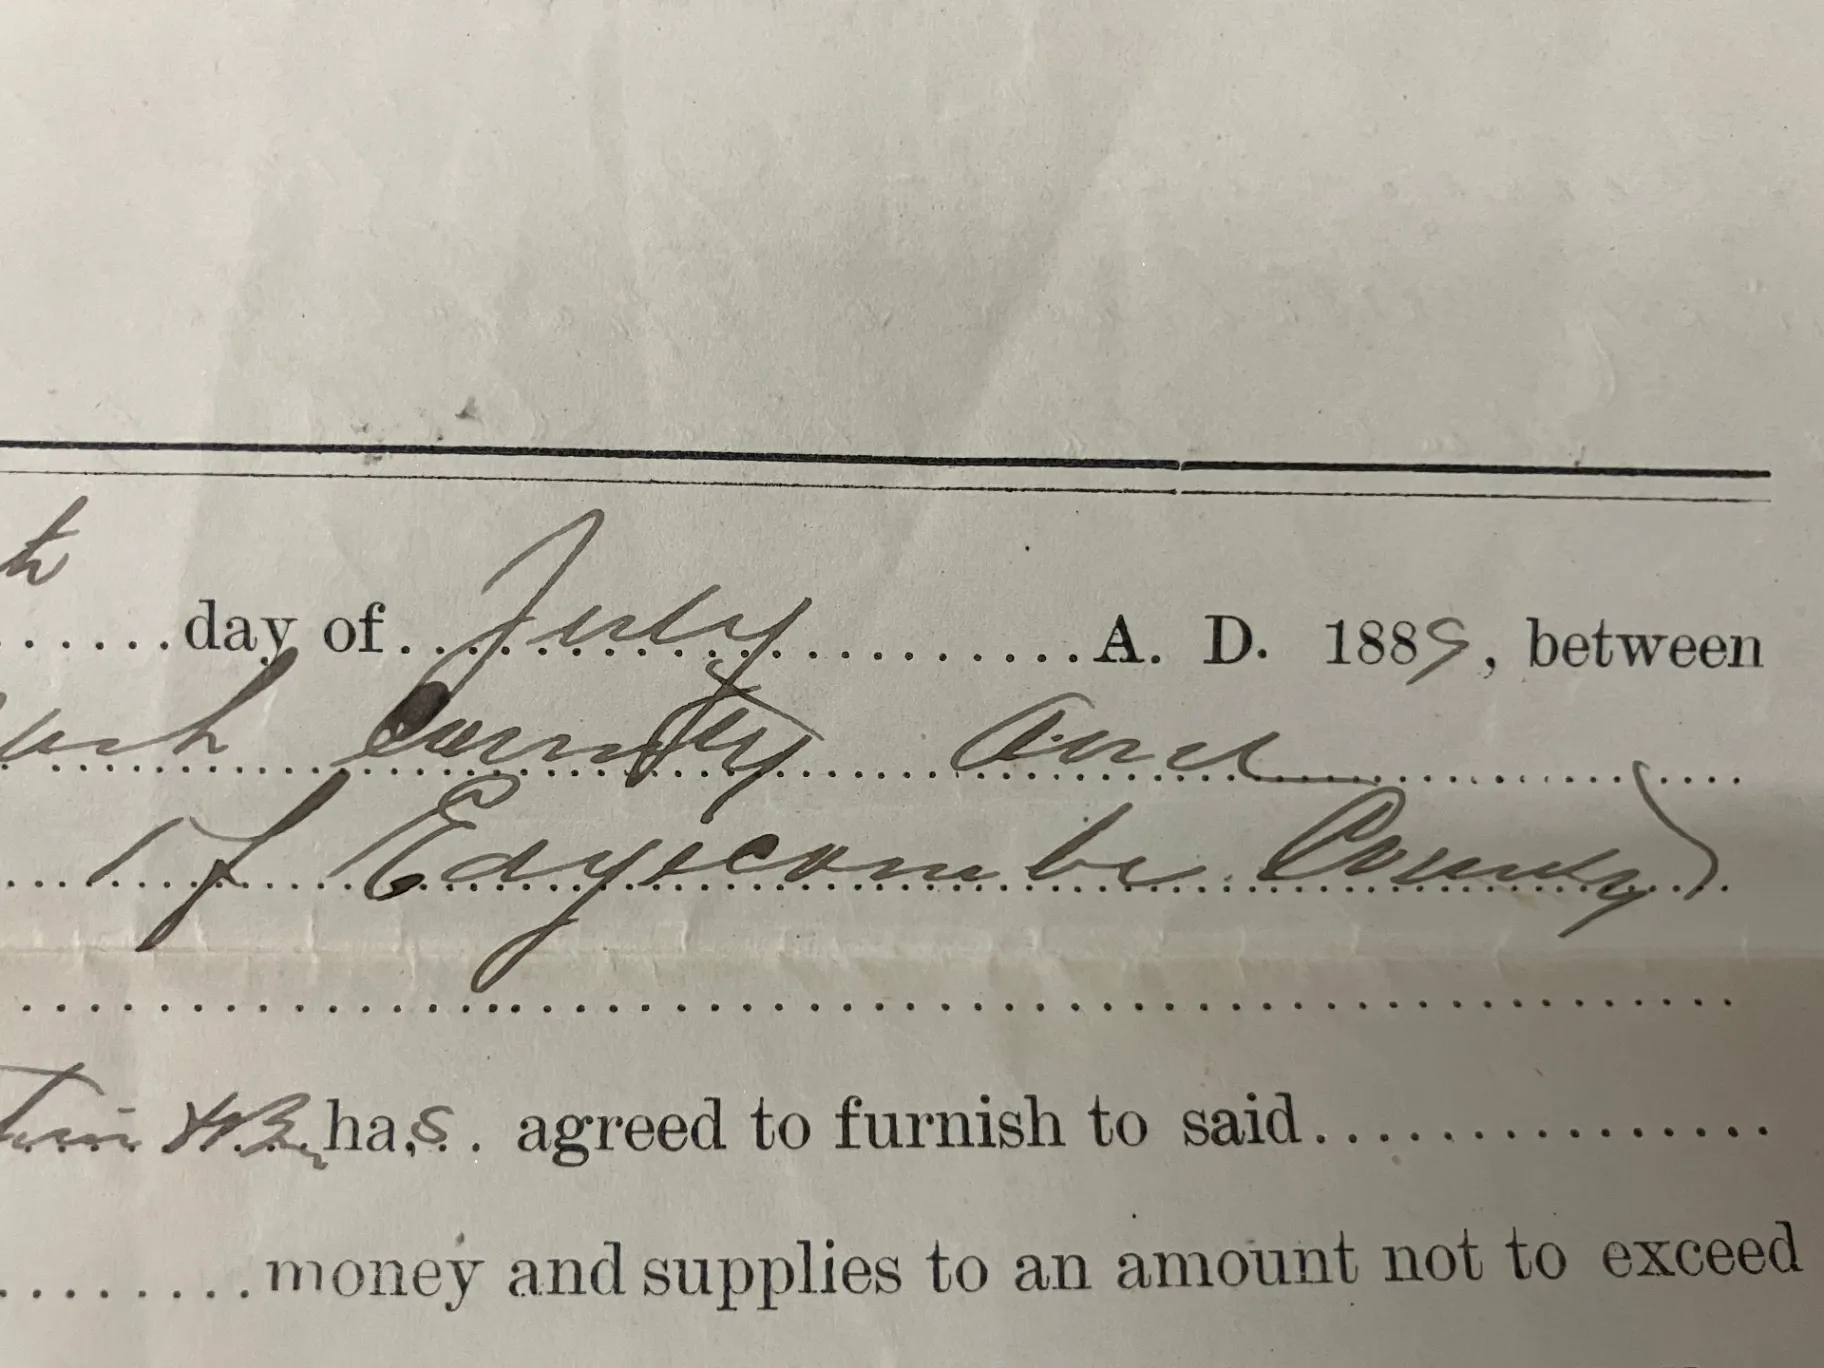 th
day of July A. D. 1889, between
County and
of Edgecombe County
has agreed to furnish to said
money and supplies to an amount not to exceed